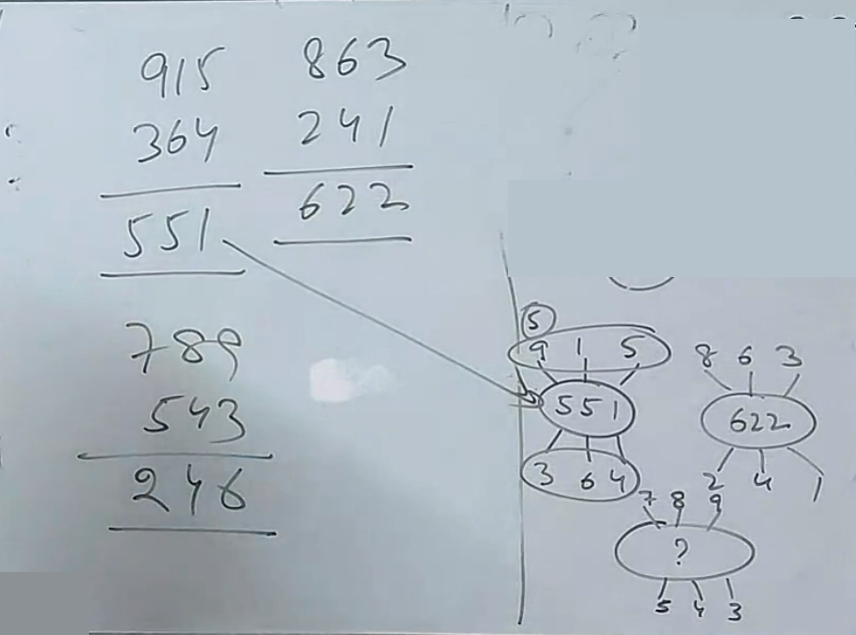 915
364
551
863
241
622
789
543
246
5
9 1 5
551
3 6 4
8 6 3
622
2 4 1
7 8 9
?
5 4 3